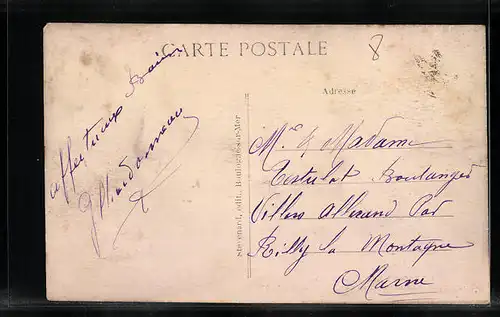 CARTE POSTALE
8
Affectueux Baisers
Adresse
Stevenard, édit., Boulogne-sur-Mer
Mr & Madame
Boulanger
Villers Allerand Par
Rilly la Montagne
Marne